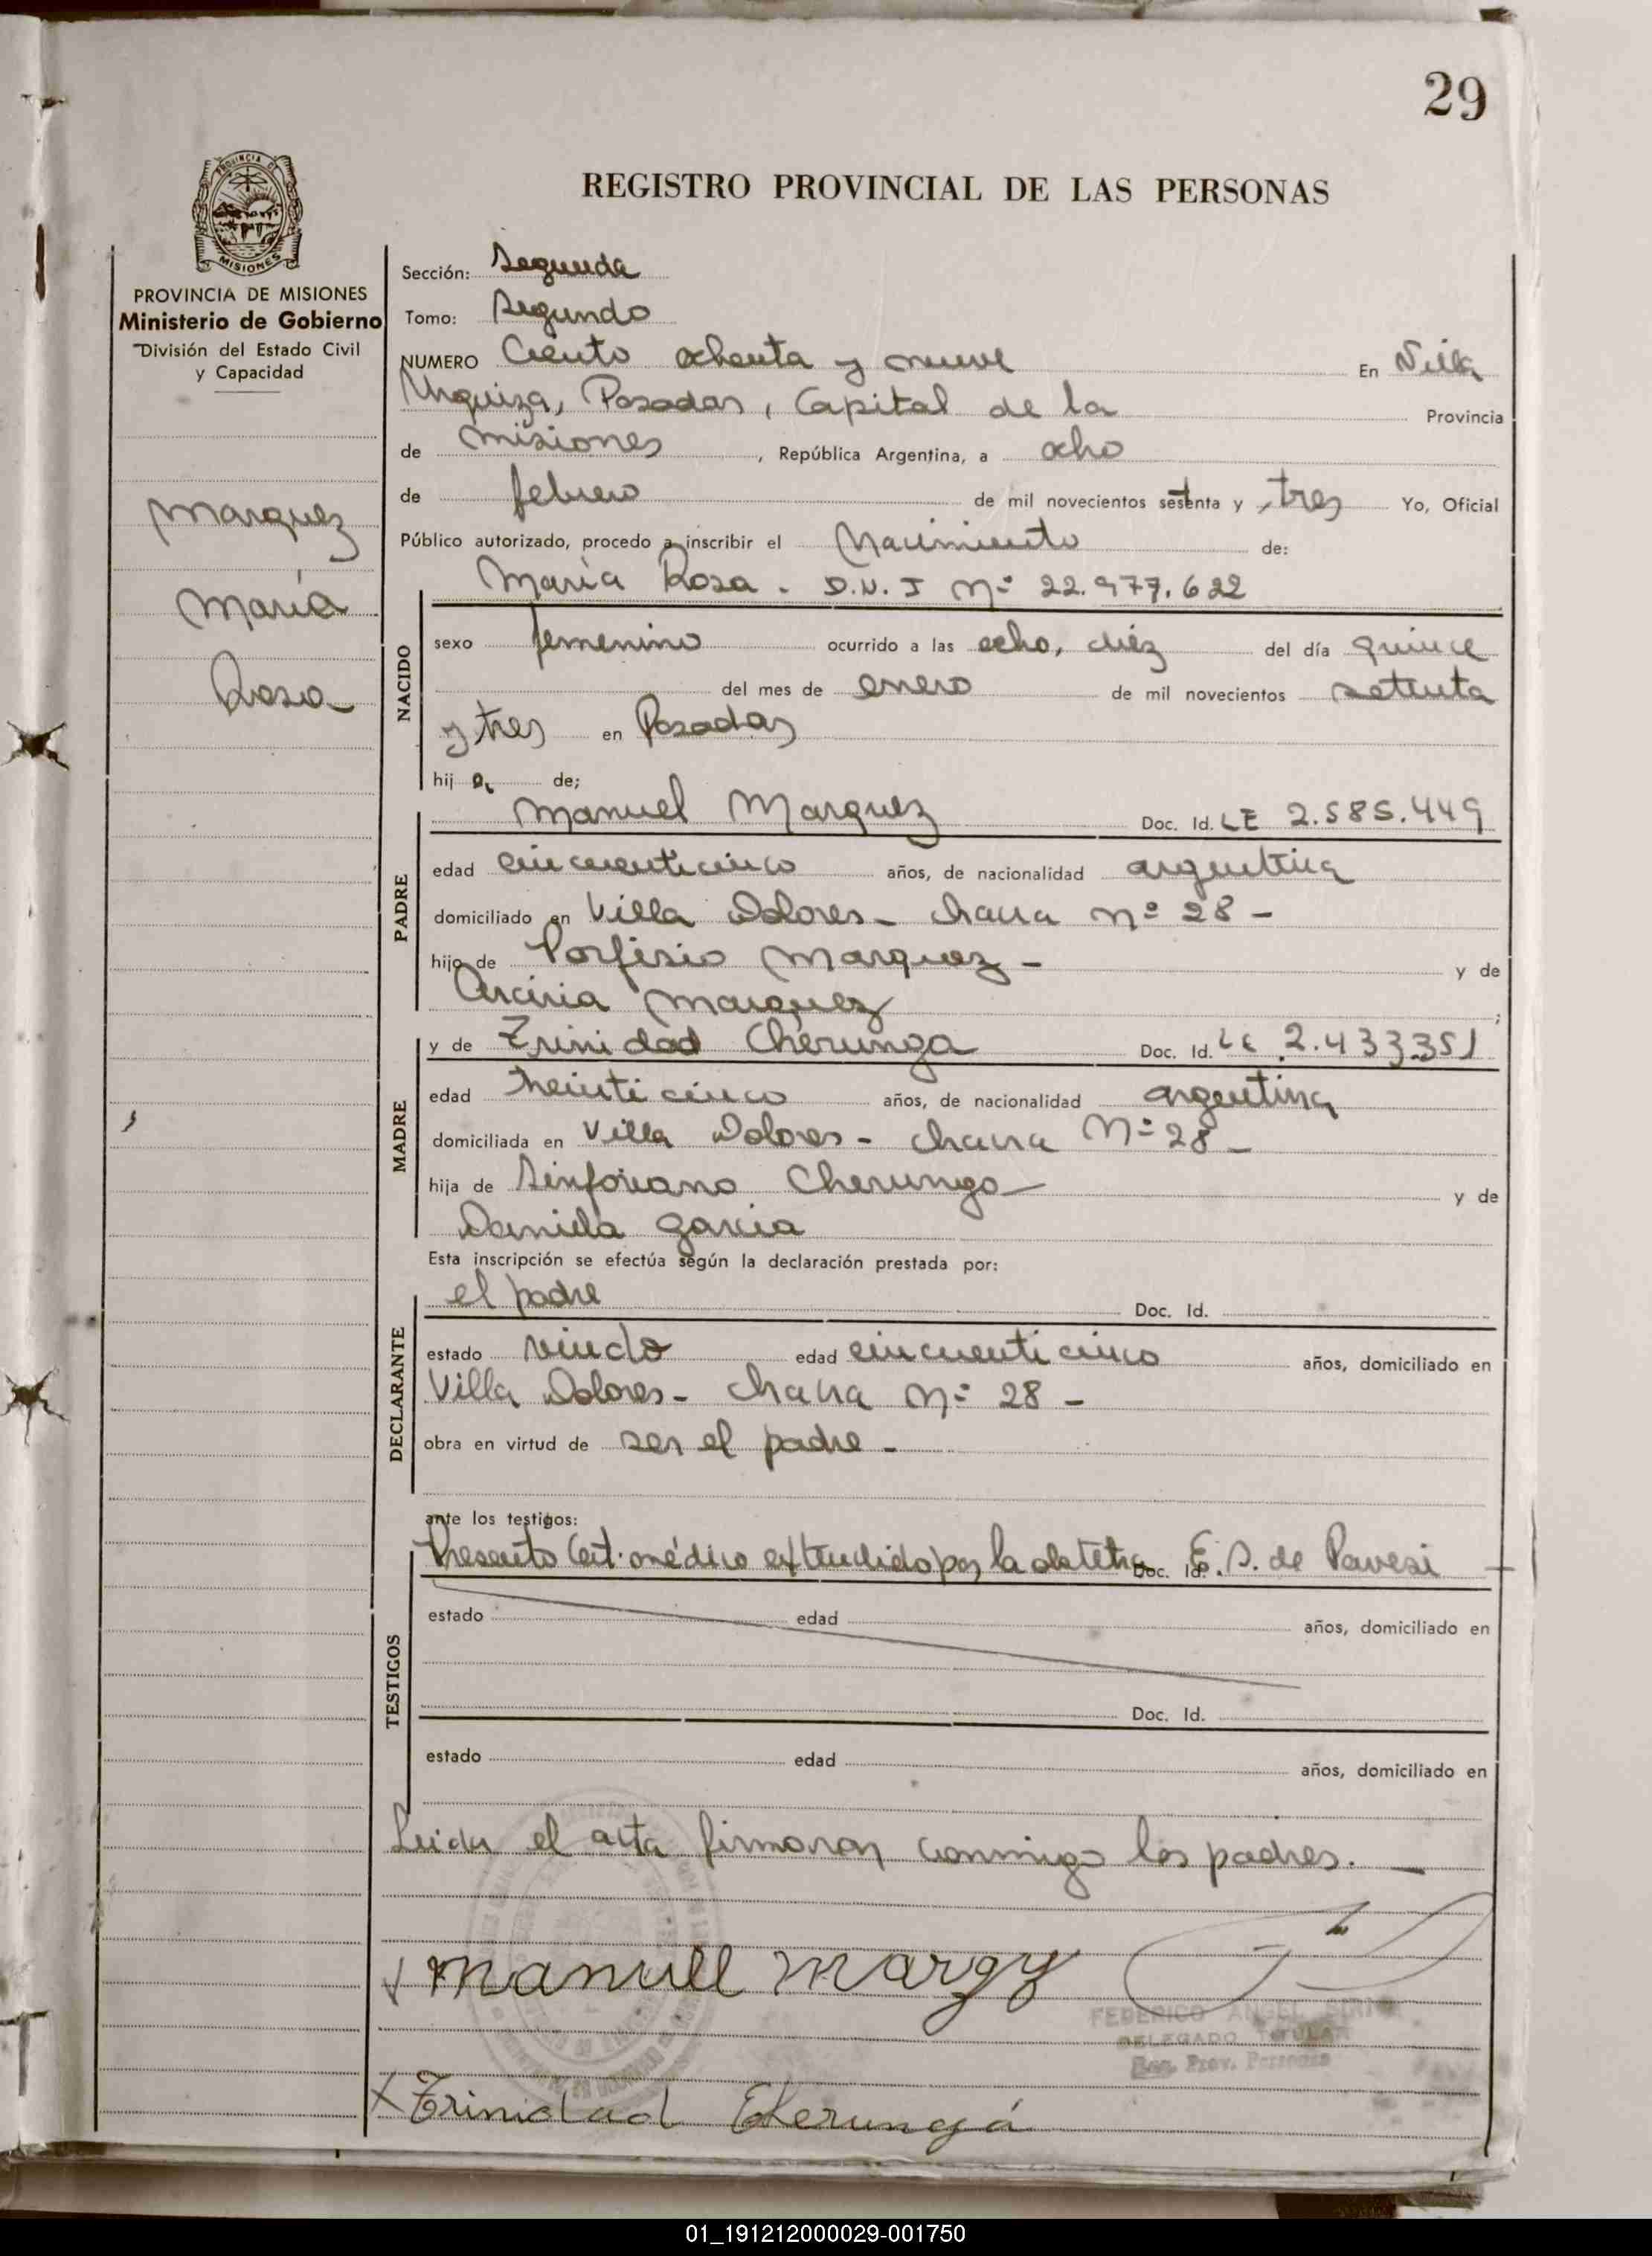 29
REGISTRO PROVINCIAL DE LAS PERSONAS
PROVINCIA DE MISIONES
PROVINCIA DE MISIONES
Ministerio de Gobierno
División del Estado Civil
y Capacidad
Marquez
María
Rosa
Sección: Segunda
Tomo: Segundo
NUMERO Ciento ochenta y nueve En Villa
Urquiza, Posadas, Capital de la Provincia
de misiones, República Argentina, a ocho
de febrero de mil novecientos setenta y tres Yo, Oficial
Público autorizado, procedo a inscribir el Nacimiento de:
María Rosa - D.N.I Nº 22.977.622
NACIDO
sexo femenino ocurrido a las ocho, diéz del día quince
del mes de enero de mil novecientos setenta
y tres en Posadas
hij a de;
PADRE
Manuel Marquez Doc. Id. LE 2.585.449
edad cincuenticinco años, de nacionalidad argentina
domiciliado en Villa Dolores - chacra nº 28 -
hijo de Porfirio Marquez - y de
Marquez;
MADRE
y de Trinidad Cherunga Doc. Id. LE 2.433.351
edad treinticinco años, de nacionalidad argentina
domiciliada en Villa Dolores - chacra Nº 28 -
hija de Sinforiano Cherunga y de
Daniela Garcia
Esta inscripción se efectúa según la declaración prestada por:
DECLARANTE
el padre Doc. Id.
estado viudo edad cincuenticinco años, domiciliado en
Villa Dolores - chacra nº 28 -
obra en virtud de ser el padre -
ante los testigos:
TESTIGOS
Presento Cert. médico extendido por la obstetra Doc. Id. E. S. de Pavesi
estado edad años, domiciliado en
Doc. Id.
estado edad años, domiciliado en
Leida el acta firmaron conmigo los padres.
Manuell Margz
FEDERICO ANGEL
DELEGADO TITULAR
Reg. Prov. Personas
X Trinidad Cherungá
01_191212000029-001750